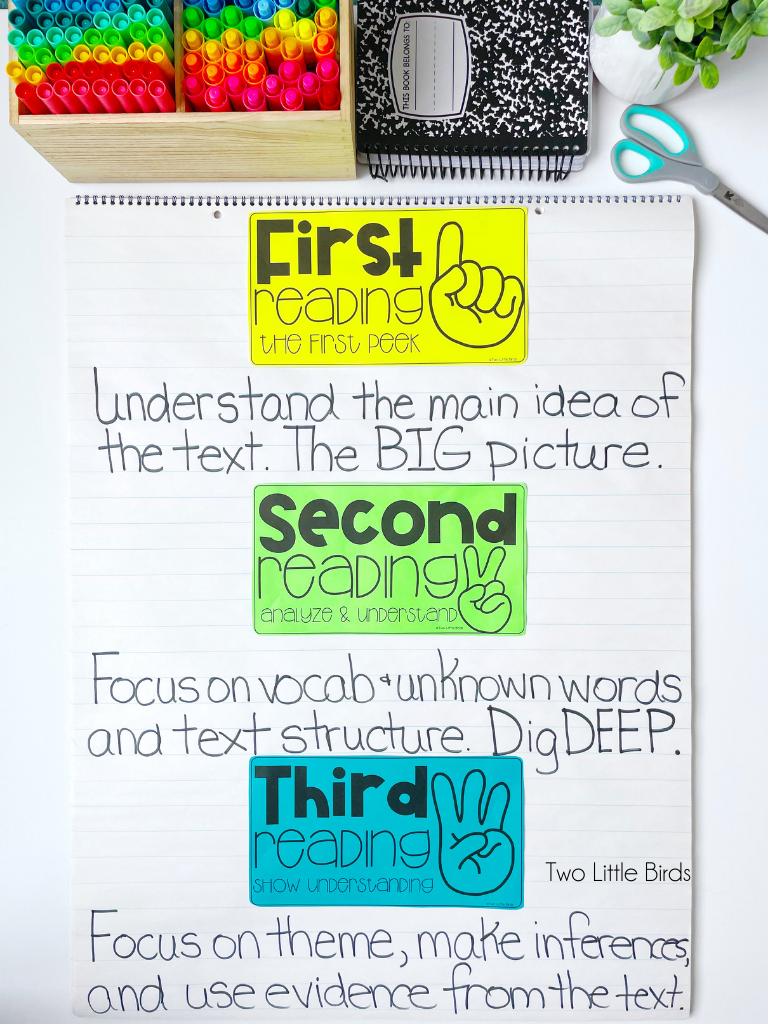 THIS BOOK BELONGS TO:
First
reading
the first peek
Understand the main idea of
the text. The BIG picture.
Second
reading
analyze & understand
Focus on vocab & unknown words
and text structure. Dig DEEP.
Third
reading
show understanding
Two Little Birds
Focus on theme, make inferences,
and use evidence from the text.